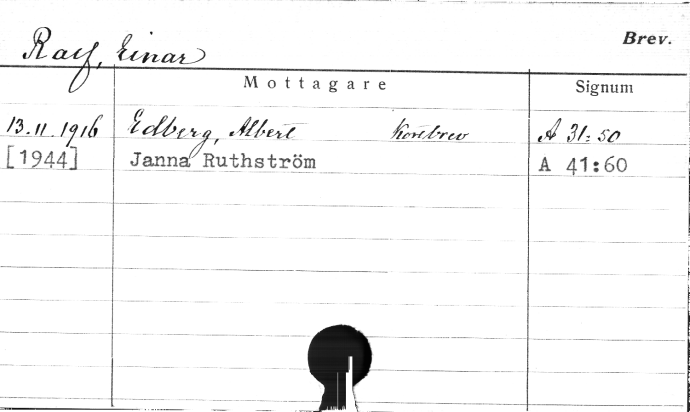 Brev.
Ralf, Einar
Mottagare Signum
13.11.1916 Edberg, Albert Kortbrev A 31:50
[1944] Janna Ruthström A 41:60